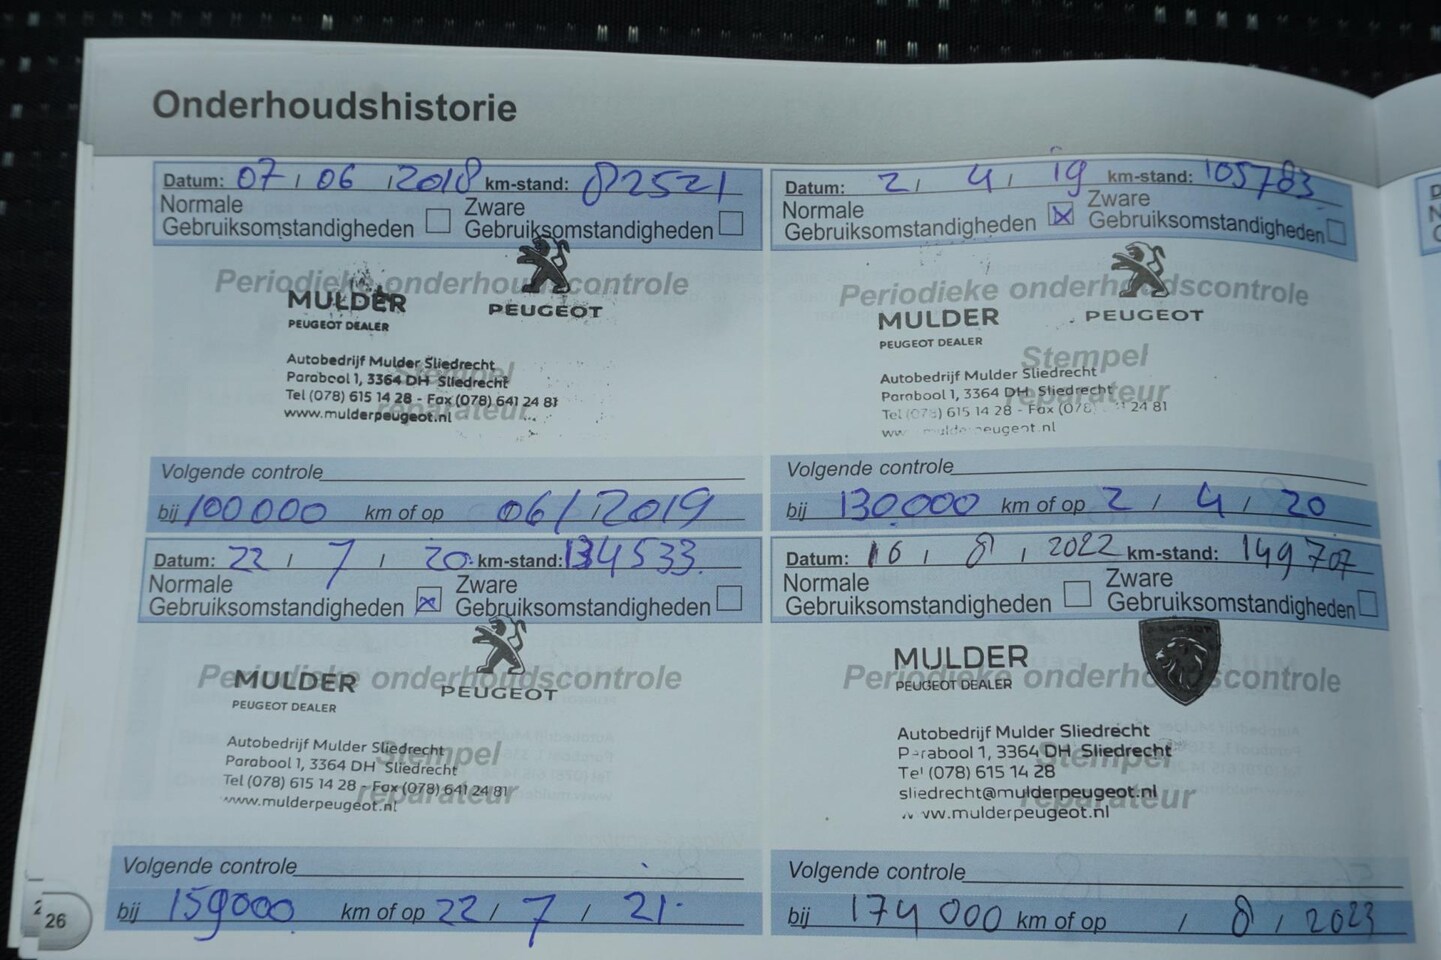 Onderhoudshistorie
Datum: 07 / 06 / 2018 km-stand: 82521
Normale Gebruiksomstandigheden
Zware Gebruiksomstandigheden
Periodieke onderhoudscontrole
MULDER
PEUGEOT DEALER
PEUGEOT
Stempel
reparateur
Autobedrijf Mulder Sliedrecht
Parabool 1, 3364 DH Sliedrecht
Tel (078) 615 14 28 - Fax (078) 641 24 81
www.mulderpeugeot.nl
Volgende controle
bij 100000 km of op 06 / 2019
Datum: 2 / 4 / 19 km-stand: 105783
Normale Gebruiksomstandigheden
Zware Gebruiksomstandigheden
Periodieke onderhoudscontrole
MULDER
PEUGEOT DEALER
PEUGEOT
Stempel
reparateur
Autobedrijf Mulder Sliedrecht
Parabool 1, 3364 DH Sliedrecht
Tel (078) 615 14 28 - Fax (078) 24 81
Volgende controle
bij 130.000 km of op 2 / 4 / 20
Datum: 22 / 7 / 20 km-stand: 134533
Normale Gebruiksomstandigheden
Zware Gebruiksomstandigheden
Periodieke onderhoudscontrole
MULDER
PEUGEOT DEALER
PEUGEOT
Stempel
reparateur
Autobedrijf Mulder Sliedrecht
Parabool 1, 3364 DH Sliedrecht
Tel (078) 615 14 28 - Fax (078) 641 24 81
www.mulderpeugeot.nl
Volgende controle
bij 159000 km of op 22 / 7 / 21
Datum: 16 / 8 / 2022 km-stand: 149707
Normale Gebruiksomstandigheden
Zware Gebruiksomstandigheden
Periodieke onderhoudscontrole
MULDER
PEUGEOT DEALER
PEUGEOT
Stempel
reparateur
Autobedrijf Mulder Sliedrecht
Parabool 1, 3364 DH Sliedrecht
Tel (078) 615 14 28
sliedrecht@mulderpeugeot.nl
www.mulderpeugeot.nl
Volgende controle
bij 174 000 km of op / 8 / 2023
26